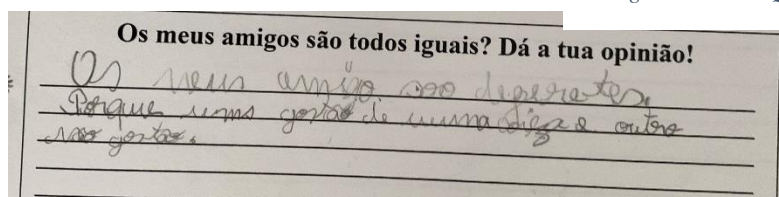 Os meus amigos são todos iguais? Dá a tua opinião!
Os meus amigo são deferetes.
Porque uns gostão de uma e outro
não gostão.